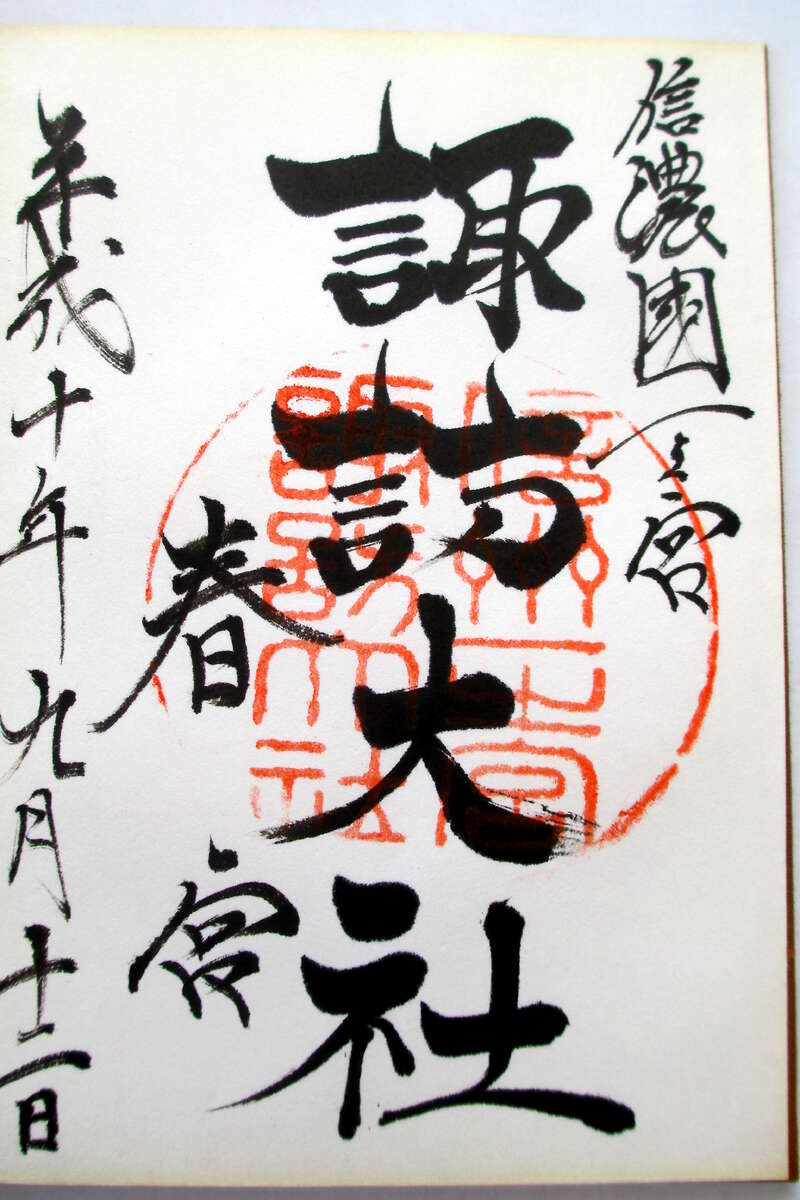 信濃國一之宮
諏訪大社
春宮
平成十年九月十二日
信州一之宮
諏訪大社